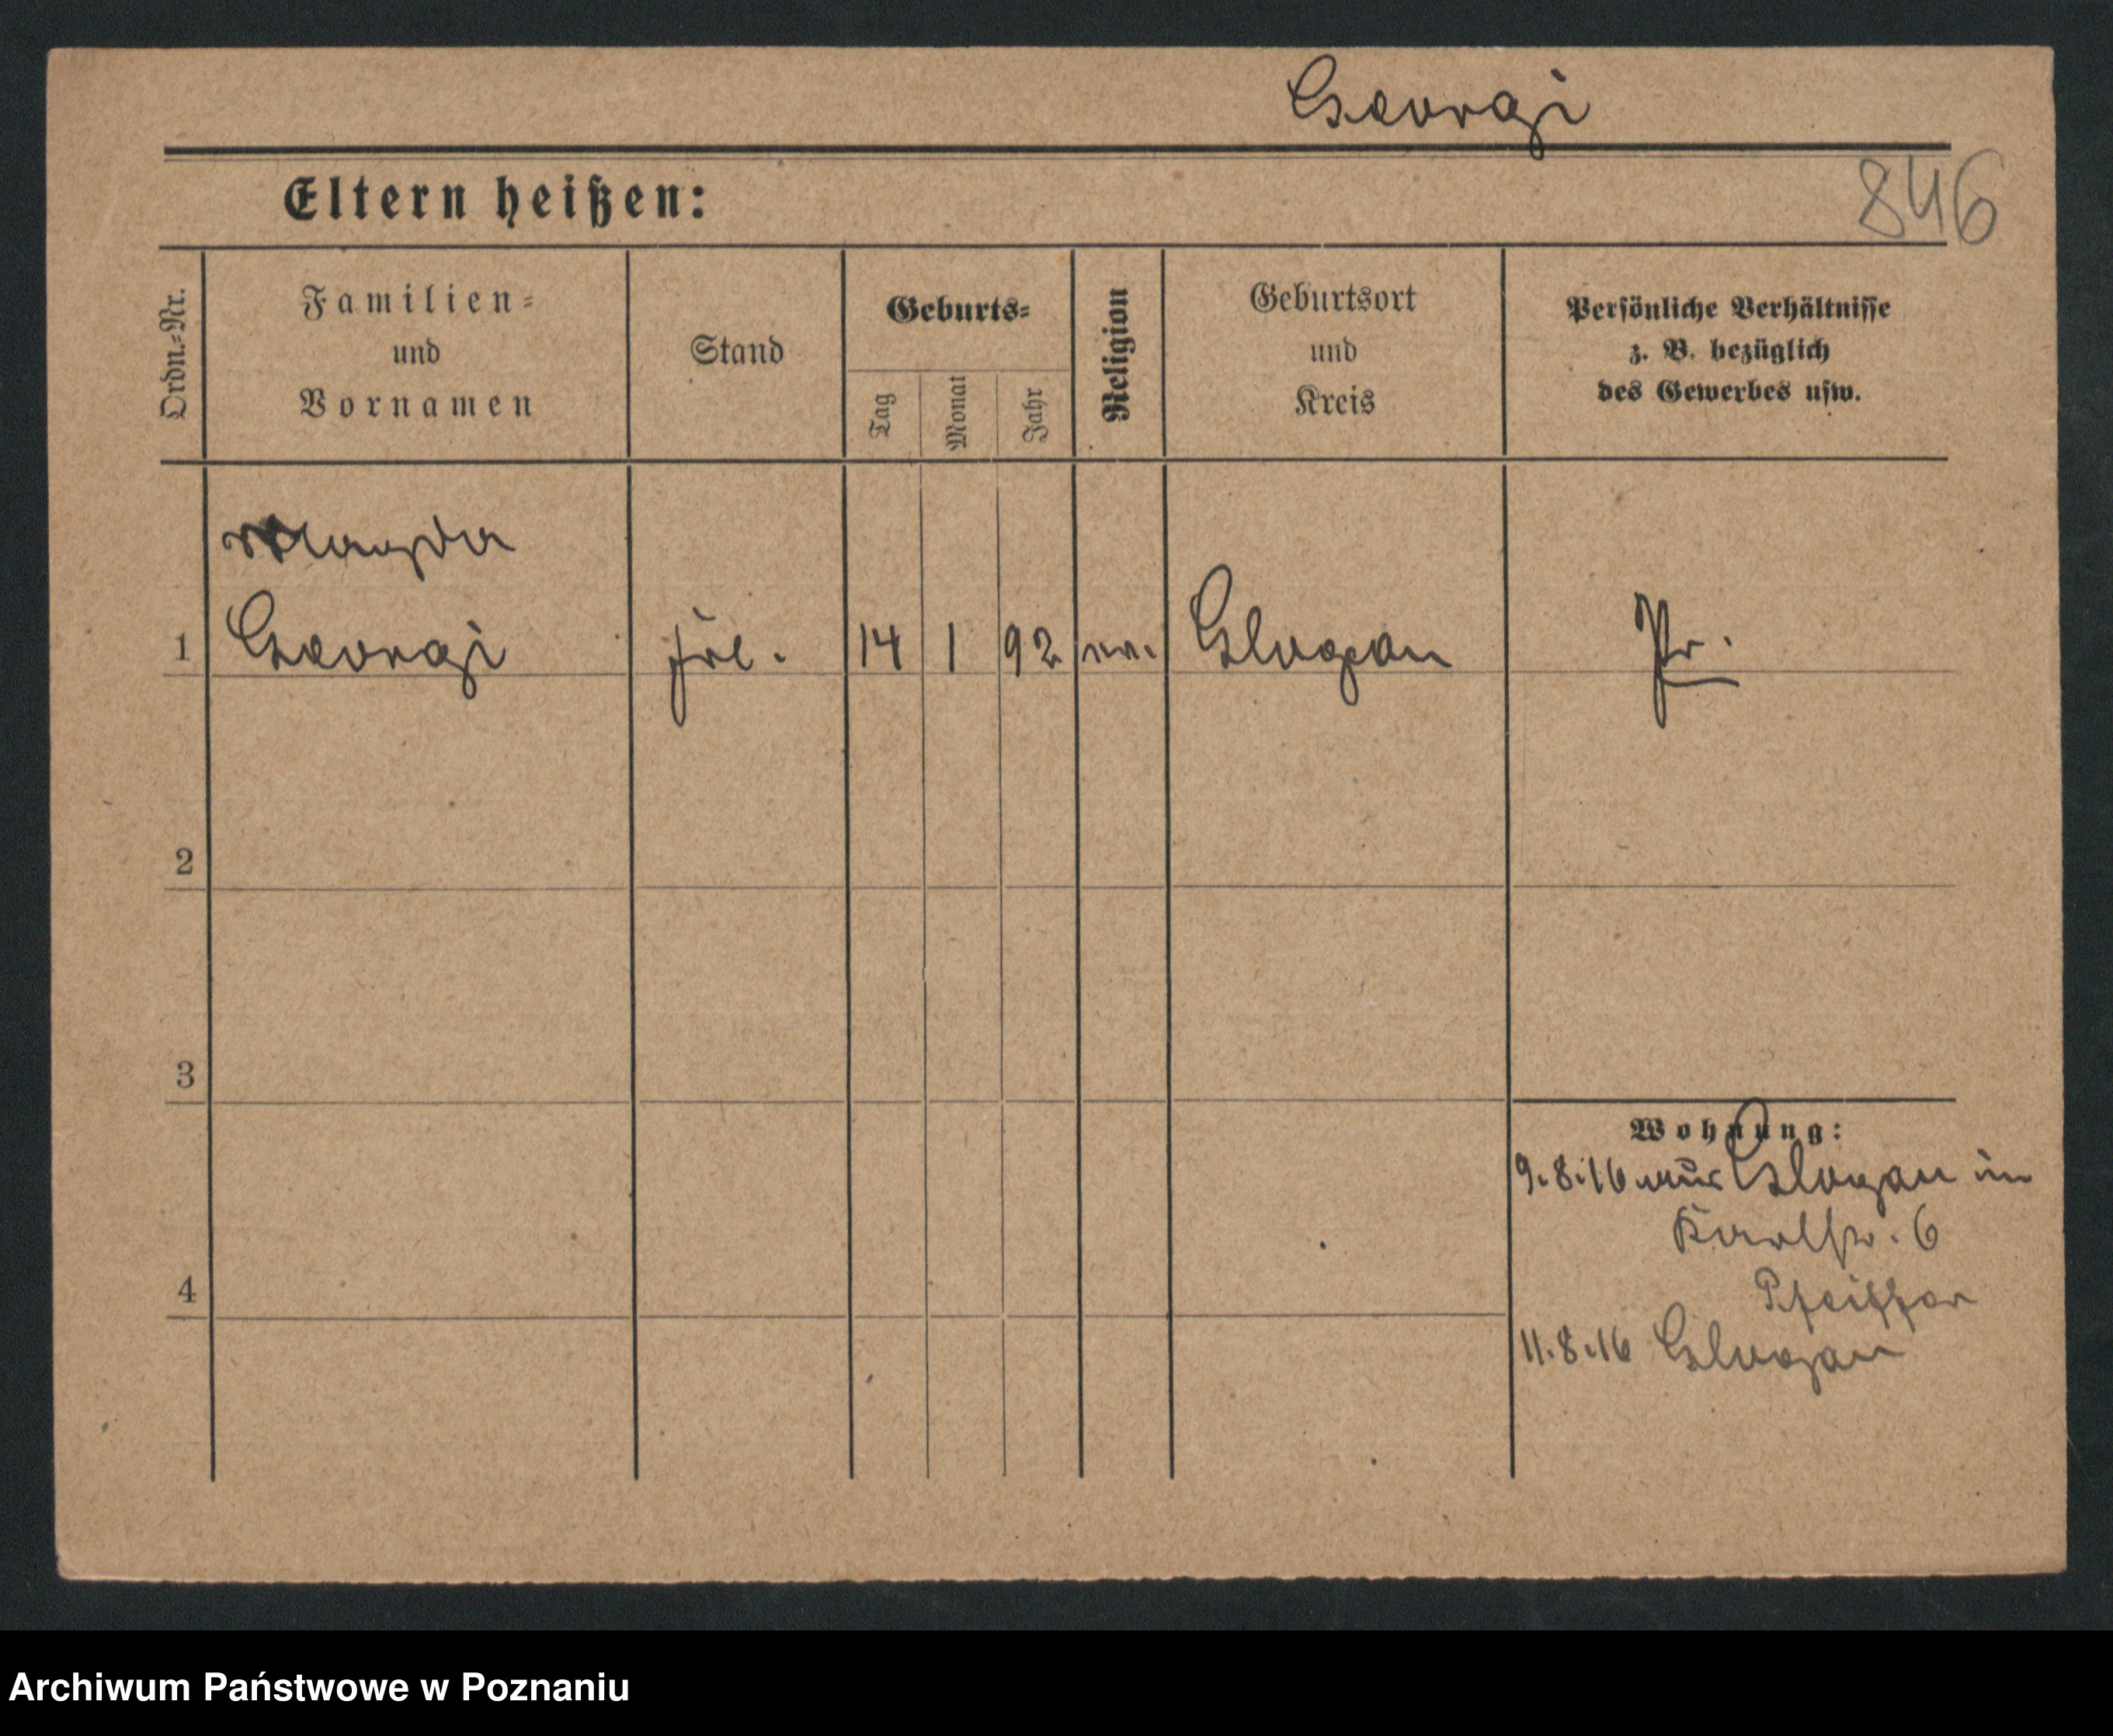 Georgi
846
Eltern heißen:
Ordn.-Nr.
Familien-
und
Vornamen
Stand
Geburts-
Tag
Monat
Jahr
Religion
Geburtsort
und
Kreis
Persönliche Verhältnisse
z. B. bezüglich
des Gewerbes usw.
Magda
1 Georgi 14 1 92 Glogau Pr.
2
3
4
Wohnung:
9.8.16 aus Glogau in
6
Pfeiffer
11.8.16 Glogau
Archiwum Państwowe w Poznaniu